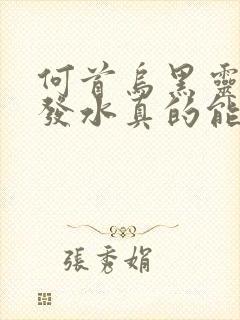 何首烏黑靈
發水真的能
張秀娟